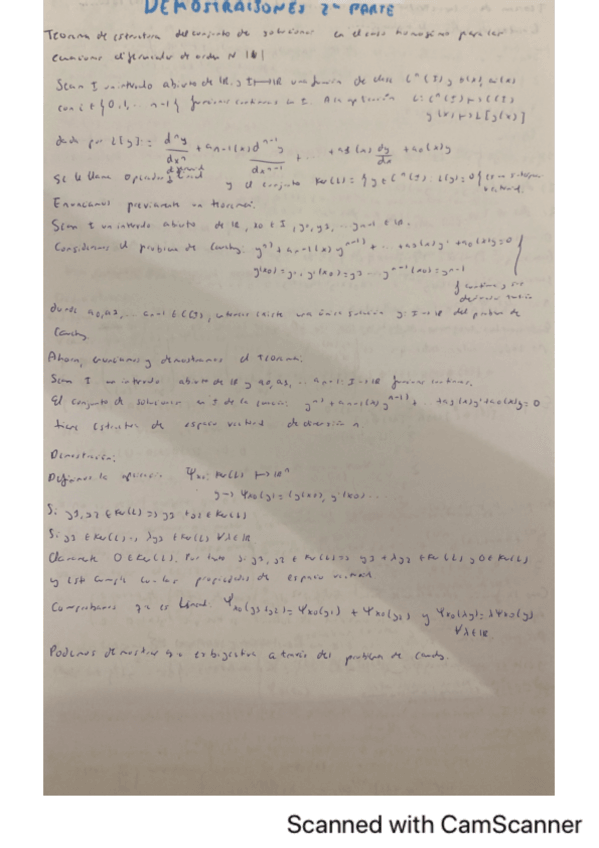 DEMOSTRAISONES 2ª PARTE
Teorema de estructura del conjunto de soluciones en el caso homogéneo para las
ecuaciones diferenciales de orden N
Sean I un intervalo abierto de IR, y I→IR una función de clase C^n(I) y
con i ∈ {0,1,... n-1} funciones continuas en I. A la aplicación L: C^n(I) → C(I)
y(x) → L[y(x)]
dada por L[y] := d^n y/dx^n + a_{n-1}(x) d^{n-1} y/dx^{n-1} + ... + a1(x) dy/dx + a0(x)y
Se le llama Operador diferencial lineal y el conjunto Ker(L) = {y ∈ C^n(I): L(y)=0} es un subespacio vectorial.
Enunciamos previamente un teorema.
Sean I un intervalo abierto de IR, x0 ∈ I, y0, y1, ... yn-1 ∈ IR.
Consideramos el problema de Cauchy: y^n) + an-1(x) y^n-1) + ... + a1(x)y' + a0(x)y = 0
y(x0)=y0, y'(x0)=y1 ... y^n-1(x0)=yn-1
donde a0, a1, ... an-1 ∈ C(I), entonces existe una única solución y: I→IR del problema de
Cauchy.
Ahora, enunciamos y demostramos el Teorema:
Sean I un intervalo abierto de IR y a0, a1, ... an-1: I→IR funciones continuas.
El conjunto de soluciones en I de la ecuación: y^n) + an-1(x) y^n-1) + ... + a1(x)y' + a0(x)y = 0
tiene estructura de espacio vectorial de dimensión n
Demostración:
Definimos la aplicación Ψx0: Ker(L) → IR^n
y → Ψx0(y) = (y(x0), y'(x0) ...
Si y1, y2 ∈ Ker(L) => y1 + y2 ∈ Ker(L)
Si y1 ∈ Ker(L) => λy1 ∈ Ker(L) ∀λ ∈ IR
Claramente 0 ∈ Ker(L). Por tanto si y1, y2 ∈ Ker(L) => y1 + λy2 ∈ Ker(L) y 0 ∈ Ker(L)
y esto cumple con las propiedades de espacio vectorial
Comprobamos que es lineal. Ψx0(y1+y2) = Ψx0(y1) + Ψx0(y2) y Ψx0(λy) = λΨx0(y)
∀λ ∈ IR.
Podemos demostrar que es biyectiva a través del problema de Cauchy.
Scanned with CamScanner